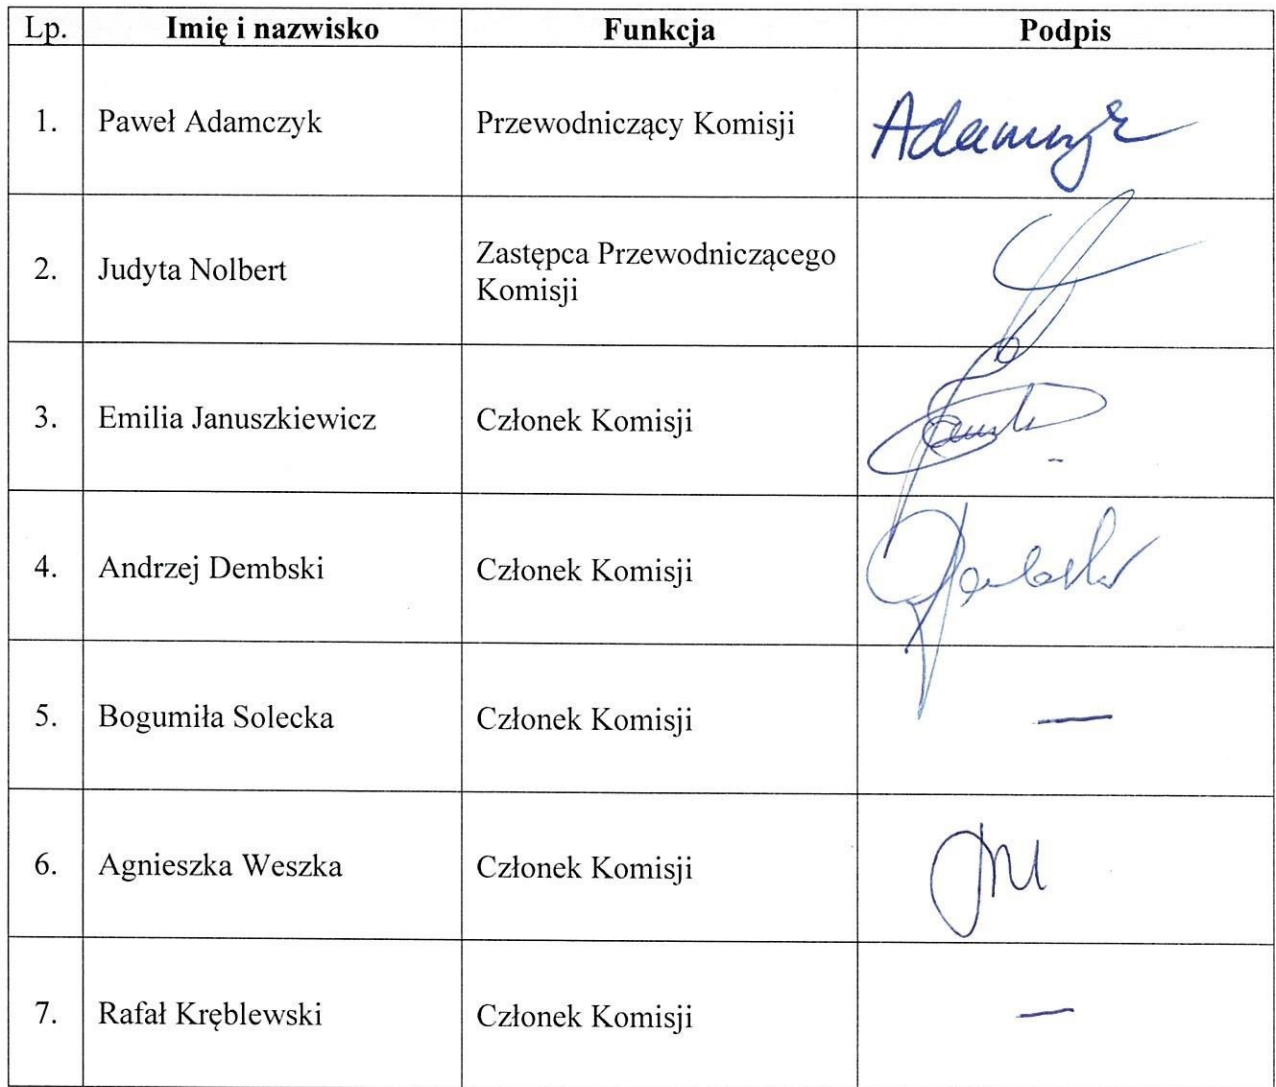 Lp. Imię i nazwisko Funkcja Podpis
1. Paweł Adamczyk Przewodniczący Komisji Adamczyk
2. Judyta Nolbert Zastępca Przewodniczącego
Komisji
3. Emilia Januszkiewicz Członek Komisji
4. Andrzej Dembski Członek Komisji
5. Bogumiła Solecka Członek Komisji —
6. Agnieszka Weszka Członek Komisji
7. Rafał Kręblewski Członek Komisji —